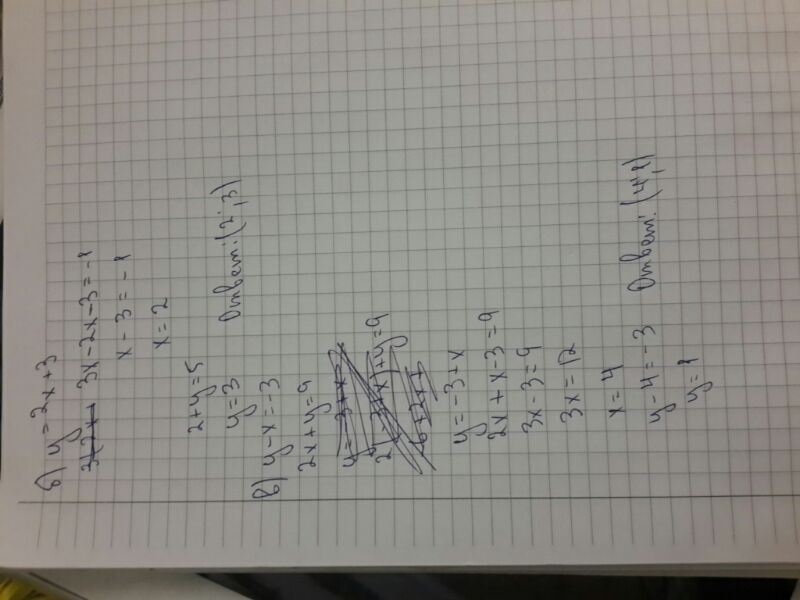 б) y = 2x+3
3x-2x-3=-1
x-3=-1
x=2
2+y=5
y=3 Ответ: (2;3)
в) y-x=-3
2x+y=9
y=-3+x
2x+x-3=9
3x-3=9
3x=12
x=4
y-4=-3 Ответ: (4;1)
y=1